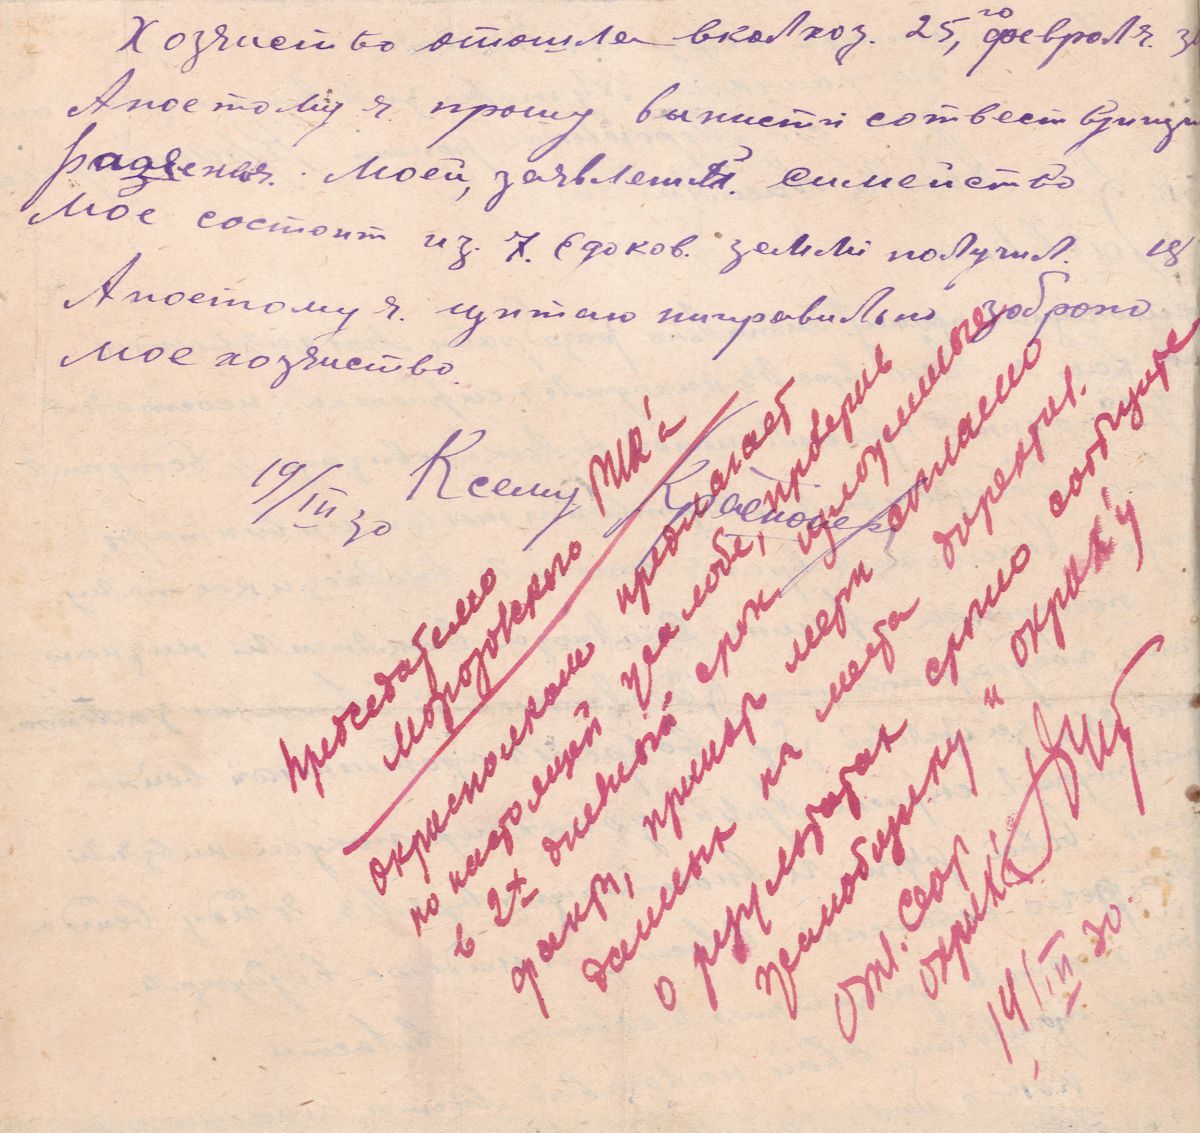 Хозяиство отошла вколхоз. 25,го февроля.
Апостому я. прошу вынисти сотвест
разяения. моей, заявлении. симейство
мое состоит из. 7. едоков. землі получил. 18
Апостому я. щитаю ниправильно зоброно
мое хозяиство.
19/III 30 Ксему
Председателю
Морозовского РИК'а
окрисполком предлагает
по настоящей жалобе, проверив
в 2х дневный срок изложенные
факты, примор меры согласно
данных на места директив.
о результатах срочно сообщите
жалобщику и окрик'у
отв. секр
окрик'а
19/III 30.